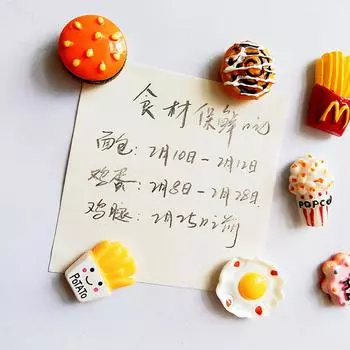 食材保鲜记
面包：2月10日-2月12日
鸡蛋：2月8日-2月28日
鸡腿：2月25日之前
POPCO
POTATO